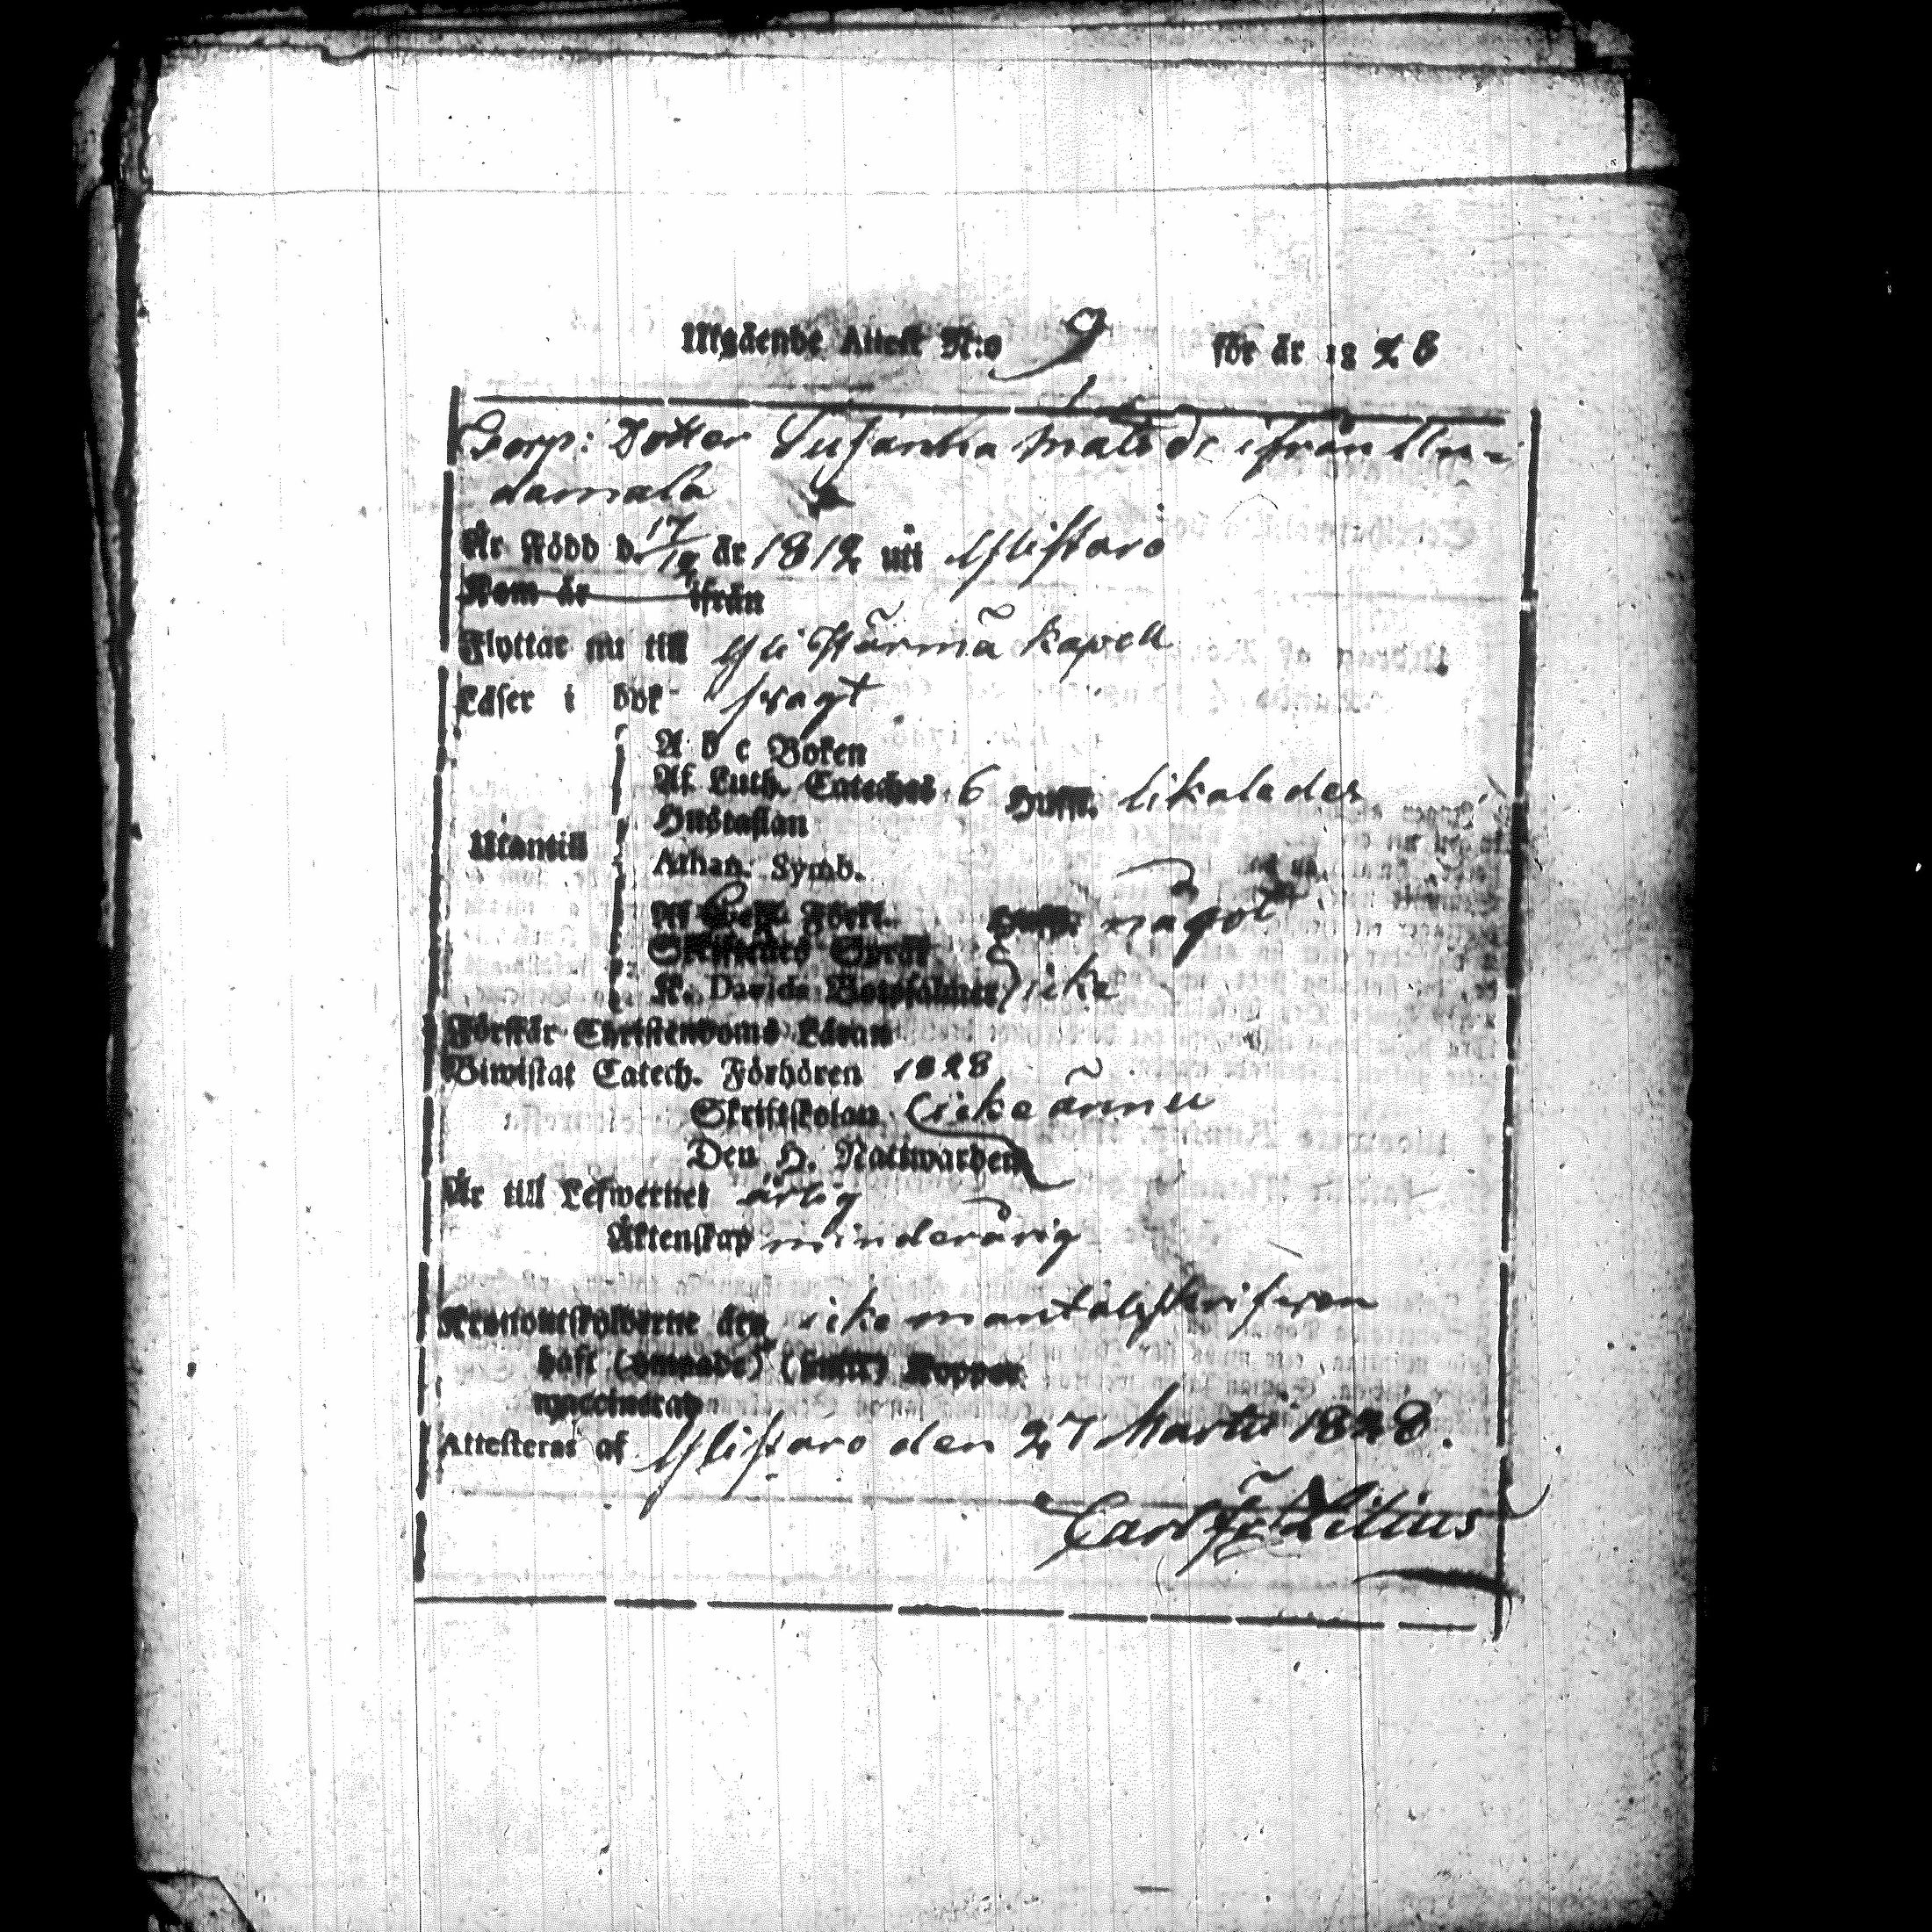 Utgående Attest N:o 9 för år 1828
Torp: Dotter Susanna Mats dr ifrån Un-
damala
Är född d. 17/12 år 1812 uti Ylistaro
Kom år ifrån
Flyttar nu till Yli Härmä kapell
Läser i bok svagt
A b c Boken
Af Luth. Cateches 6 Huf. likaledes
Hustaflan
Utantill
Athan. Symb.
Af Förkl. något
Skriftenes Språk
K. Davids Botpsalmer icke
Förstår Christendoms Läran
Biwistat Catech. Förhören 1828
Skriftskolan icke ännu
Den H. Nattwarden
Är till Lefwernet ärlig
Äktenskap minderårig
icke mantalsskrifven
haft Koppor
vaccinerad
Attesteras af Ylistaro den 27 Martii 1828.
Carl Fr Lilius